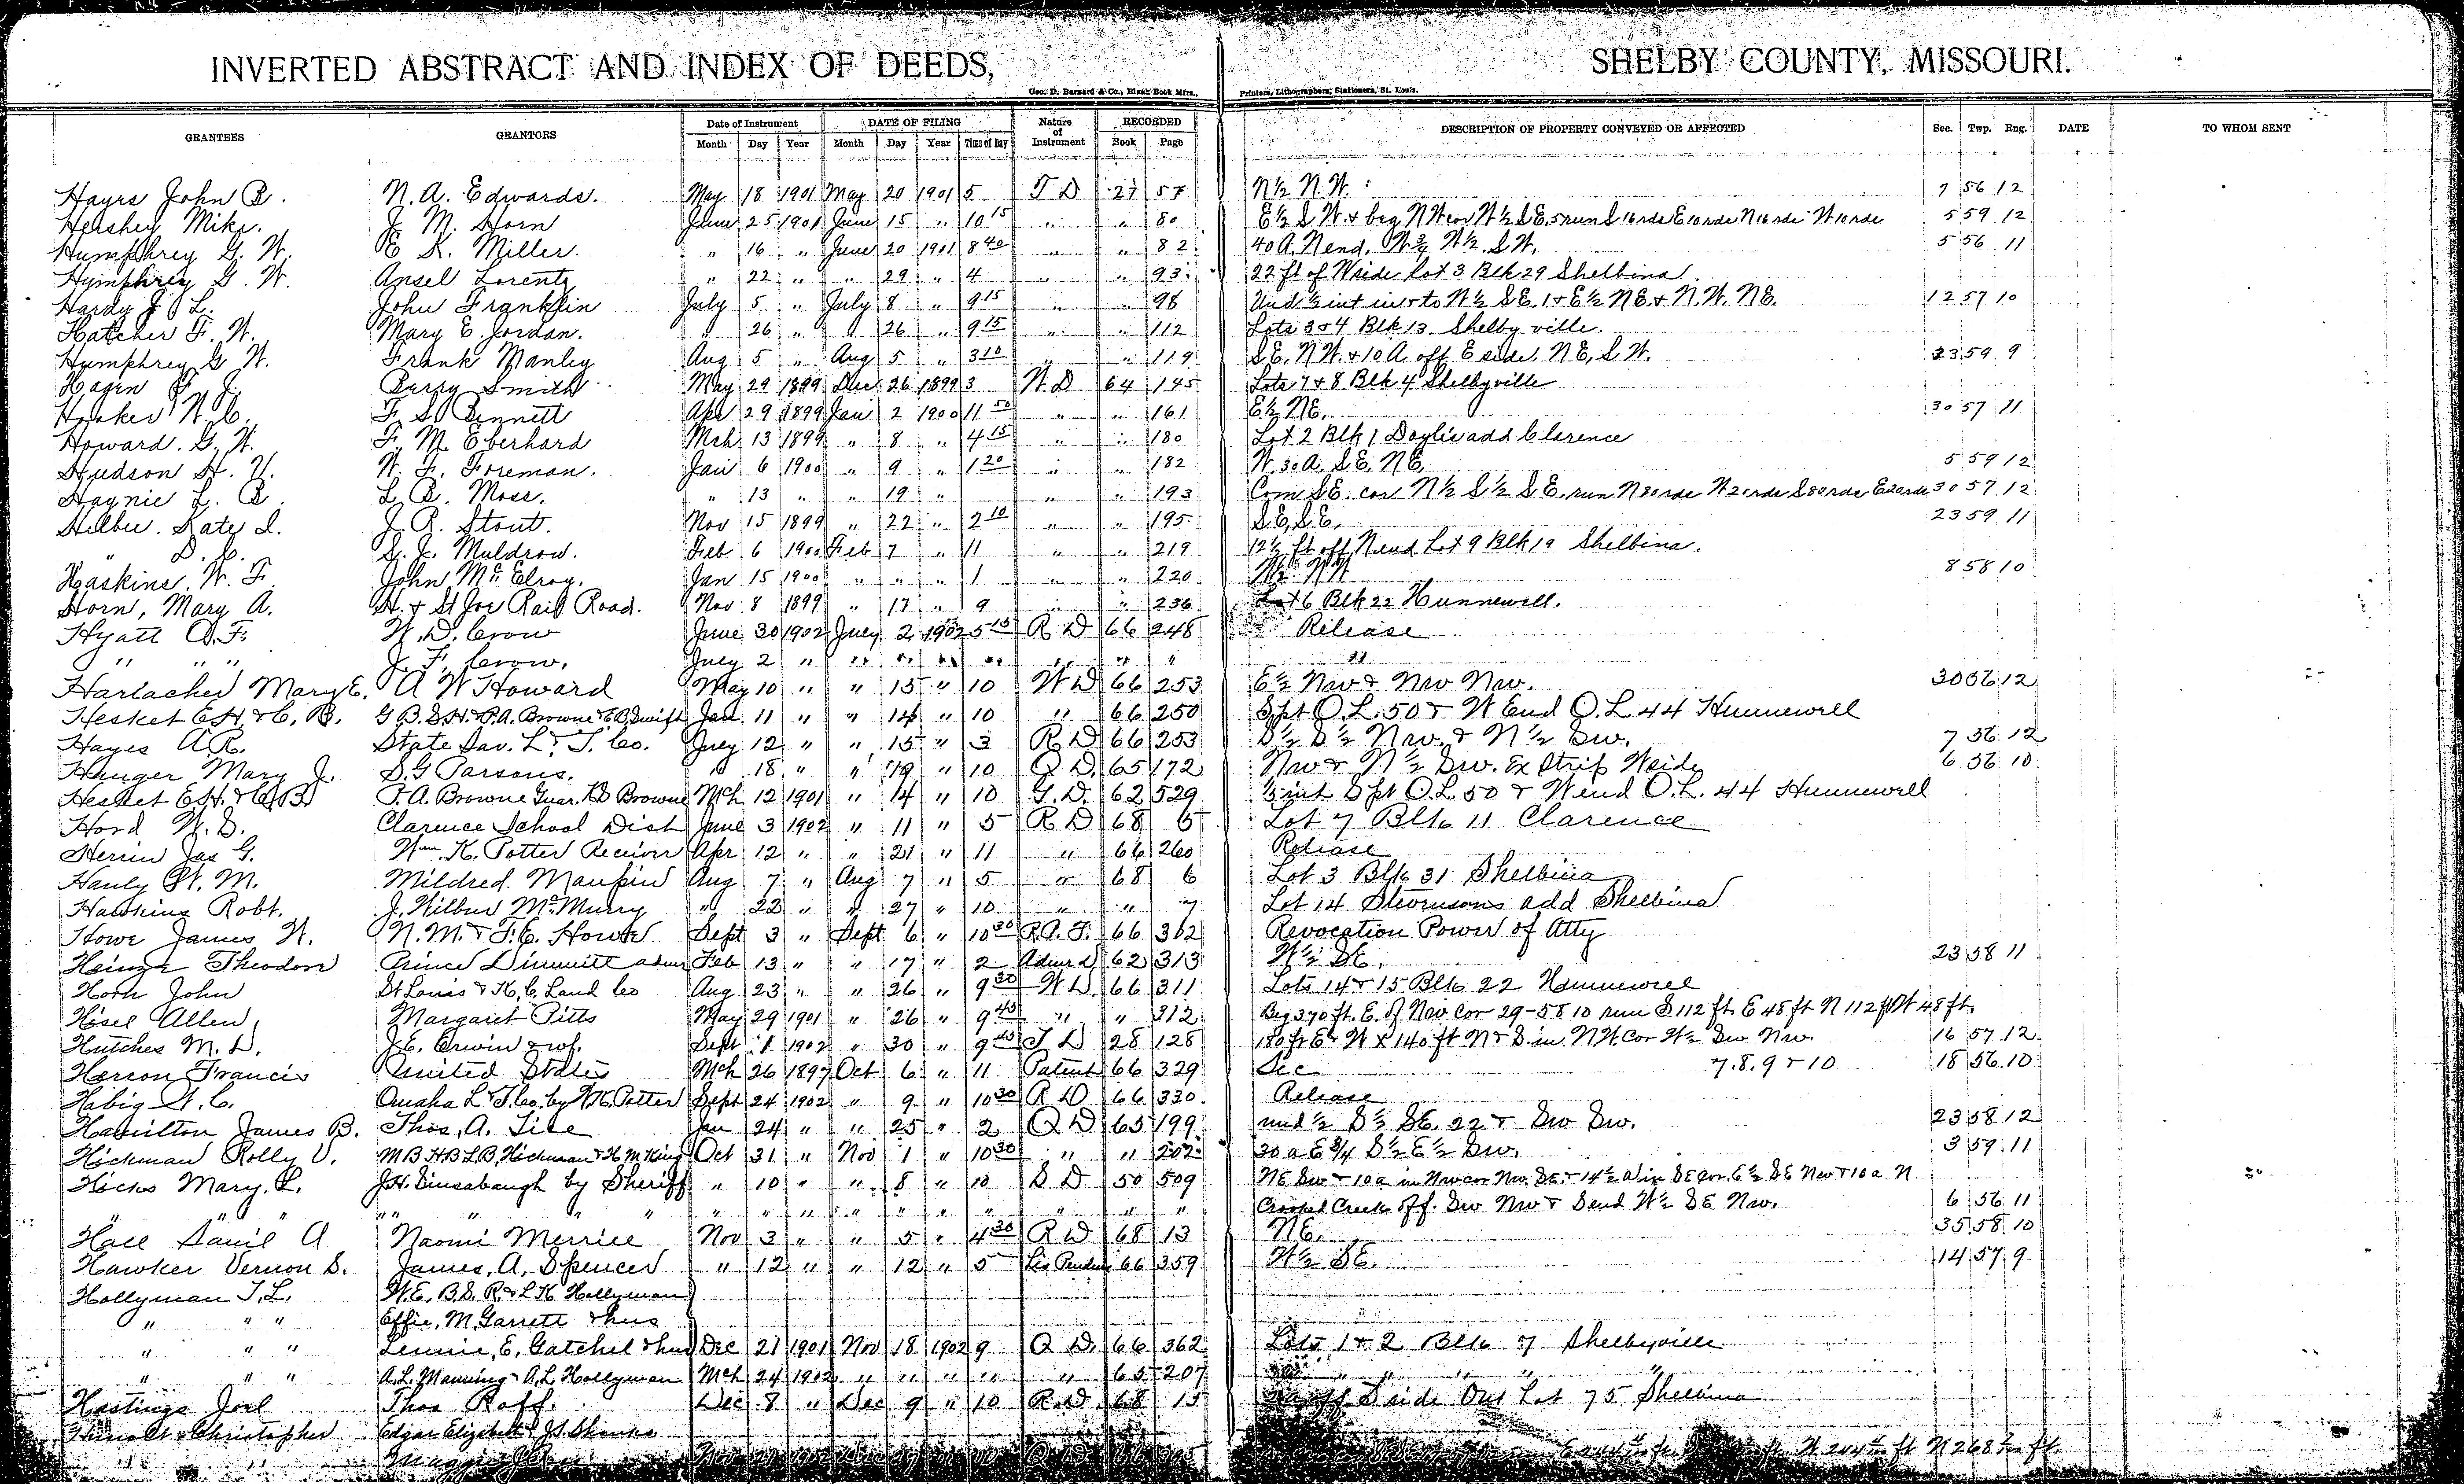 INVERTED ABSTRACT AND INDEX OF DEEDS, SHELBY COUNTY, MISSOURI.
Geo. D. Barnard & Co., Blank Book Mfrs., Printers, Lithographers, Stationers, St. Louis.
GRANTEES GRANTORS Date of Instrument DATE OF FILING Nature of Instrument RECORDED DESCRIPTION OF PROPERTY CONVEYED OR AFFECTED Sec. Twp. Rng. DATE TO WHOM SENT
Month Day Year Month Day Year Time of Day Book Page
Hayes John B. N. A. Edwards. May 18 1901 May 20 1901 5 T D 27 57 N½ N.W. 7 56 12
Hershey Mike. J. M. Horn June 25 1901 June 15 " 10 15 " " 80 E½ S W. & beg N W cor W½ S E, 5 run S 16 rds E 10 rds N 16 rds W 10 rds 5 59 12
Humphrey G. W. E. K. Miller. " 16 " June 20 1901 8 40 " " 82 40 A. N end, W¾ W½ S W. 5 56 11
Humphrey G. W. Ansel Lorentz " 22 " " 29 " 4 " " 93 22 ft of W side Lot 3 Blk 29 Shelbina
Hardy J. L. John Franklin July 5 " July 8 " 9 15 " " 98 Und ½ int in & to W½ S E. 1 & E½ N E. & N. W. N E. 12 57 10
Hatcher F. W. Mary E. Jordan. " 26 " " 26 " 9 15 " " 112 Lots 3 & 4 Blk 13 Shelbyville.
Humphrey G. W. Frank Manley Aug 5 " Aug 5 " 3 10 " " 119 S E. N W. & 10 A off E side N E, S W. 23 59 9
Hagen F. J. Perry Smith May 29 1899 Dec 26 1899 3 W D 64 145 Lots 7 & 8 Blk 4 Shelbyville
Hooker W. C. F. S. Bennett Apr 29 1899 Jan 2 1900 11 50 " " 161 E½ N E. 30 57 11
Howard G. W. F. M. Eberhard Mch 13 1899 " 8 " 4 15 " " 180 Lot 2 Blk 1 Doyles add Clarence
Hudson H. V. W. F. Foreman. Jan 6 1900 " 9 " 1 20 " " 182 W. 30 A. S E, N E. 5 59 12
Haynie L. B. L. B. Moss. " 13 " " 19 " " " 193 Com S E. cor N½ S½ S E. run N 80 rds W 20 rds S 80 rds E 20 rds 30 57 12
Hilbu. Kate I. J. R. Stout. Nov 15 1899 " 22 " 2 10 " " 195 S. E, S. E. 23 59 11
" D. C. S. J. Muldrow. Feb 6 1900 Feb 7 " 11 " " 219 12½ ft off N end Lot 9 Blk 19 Shelbina.
Haskins, W. F. John McElroy. Jan 15 1900 " " " 1 " " 220 W½ N W 8 58 10
Horn, Mary A. H. & St Joe Rail Road. Nov 8 1899 " 17 " 9 " " 236 Lot 6 Blk 22 Hunnewell.
Hyatt O. F. W. D. Crow June 30 1902 July 2 1902 5 15 R D 66 248 Release
" " " J. F. Crow. July 2 " " " " " " " " "
Harlacher Mary E. A W Howard May 10 " " 15 " 10 W D 66 253 E½ Nw & Nw Nw. 30 56 12
Hesket E H & C. B. G B. S. H. & P. A. Browne & E B Swift Jan 11 " " 14 " 10 " 66 250 S pt O. L. 50 & W End O. L 44 Hunnewell
Hayes A. R. State Sav. L & T. Co. July 12 " " 15 " 3 R D 66 253 S½ S½ Nw. & N½ Sw. 7 56 12
Hunger Mary J. S. G Parsons. " 18 " " 19 " 10 Q D. 65 172 Nw & N½ Sw. Ex Strip W side 6 56 10
Hesket E H. & C B P. A. Browne Guar. K B Browne Mch 12 1901 " 14 " 10 G. D. 62 529 ⅓ int S pt O. L. 50 & W end O. L. 44 Hunnewell
Hord W. S. Clarence School Dist June 3 1902 " 11 " 5 R D 68 5 Lot 7 Blk 11 Clarence
Herrin Jas G. Wm. K. Potter Receiver Apr 12 " " 21 " 11 " 66 260 Release
Hanly W. M. Mildred Maupin Aug 7 " Aug 7 " 5 " 68 6 Lot 3 Blk 31 Shelbina
Hawkins Robt. J. Wilbur McMurry " 22 " " 27 " 10 " " 7 Lot 14 add Shelbina
Howe James W. N. M. & F. C. Howe Sept 3 " Sept 6 " 10 30 R. A. F. 66 362 Revocation Power of Atty
Heinze Theodore Prince Dimmitt admr Feb 13 " " 17 " 2 Admr d 62 313 W½ SE. 23 58 11
Horn John St Louis & K. C. Land Co Aug 23 " " 26 " 9 30 W D. 66 311 Lots 14 & 15 Blk 22 Hunnewell
Hisel Allen Margaret Pitts May 29 1901 " 26 " 9 45 " " 312 Beg 370 ft. E. of Nw Cor 29-58 10 run S 112 ft. E 48 ft N 112 ft W 48 ft.
Hutches M. D. J. E. Erwin & wf. Sept 1 1902 " 30 " 9 45 T D 28 128 180 ft E & W X 140 ft N & S. in N W. Cor W½ Sw Nw. 16 57 12
Herron Francis United States Mch 26 1897 Oct 6 " 11 Patent 66 329 Sec 7. 8. 9 & 10 18 56 10
Habig W. C. Omaha L & T. Co. by W. K. Potter Sept 24 1902 " 9 " 10 30 R D 66 330 Release
Hamilton James B. Thos. A. Tice Jan 24 " " 25 " 2 Q D 65 199 und ½ S½ SE. 22 & Sw Sw. 23 58 12
Hickman Rolly V. M B H B L B, Hickman & H M King Oct 31 " Nov 1 " 10 30 " " 202 30 a E ¾ S½ E½ Sw. 3 59 11
Hicks Mary. L. J. H. Sinsabaugh by Sheriff " 10 " " 8 " 10 S D 50 509 NE Sw & 10 a in Nw cor Nw SE. & 14½ a in SE cor. E½ SE Nw & 10 a N
" " " " " " " " " " " " " " " " Crooked Creek off. Sw Nw & S end W½ SE Nw. 6 56 11
Hall Daniel A Naomi Merrill Nov 3 " " 5 " 4 30 R D 68 13 NE. 35 58 10
Hawker Vernon S. James, A, Spencer " 12 " " 12 " 5 Lis Pendens 66 359 W½ SE. 14 57 9
Hollyman T. L. W. E. B. S. R. & L K Hollyman
" " " Effie, M. Garrett & hus
" " " Lennie, E, Gatchel & hus Dec 21 1901 Nov 18 1902 9 Q D. 66 362 Lots 1 & 2 Blk 7 Shelbyville
" " " A. L. Manning & A. L. Hollyman Mch 24 1902 " " " " " 65 207 " "
Hastings Joel Thos Raff. Dec 8 " Dec 9 " 10 R D 68 15 off S side Out Lot 75 Shelbina
Christopher Edgar Elizabeth & J. S. Shanks
" " Maggie